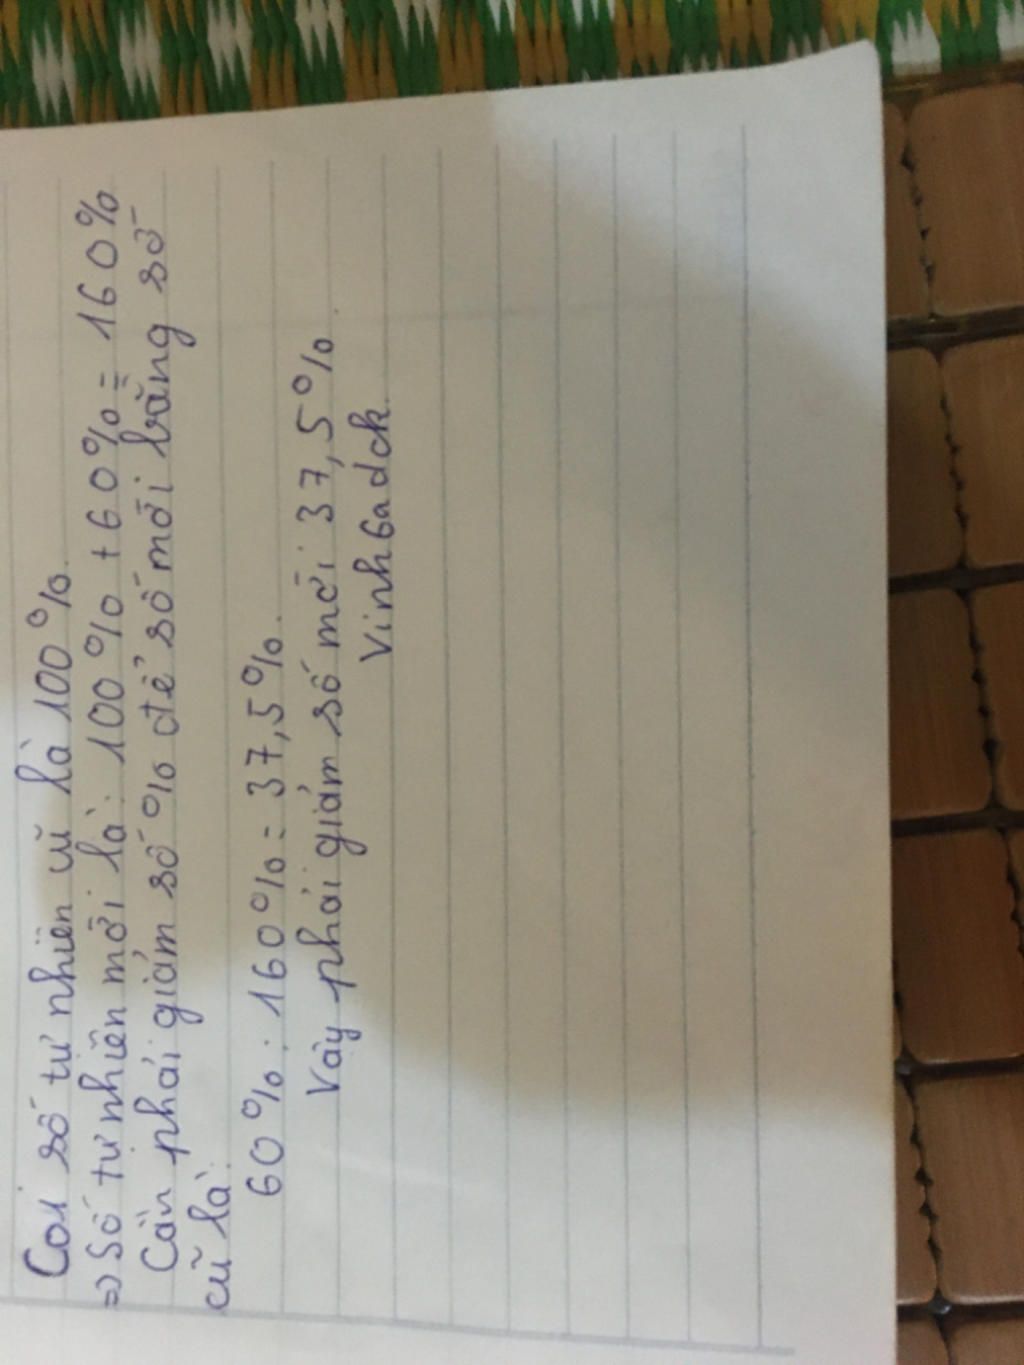 Coi số tự nhiên cũ là 100%.
=> Số tự nhiên mới là: 100% + 60% = 160%
Cần phải giảm số % để số mới bằng số
cũ là:
60% : 160% = 37,5%.
Vậy phải giảm số mới 37,5%.
Vinh6adck.